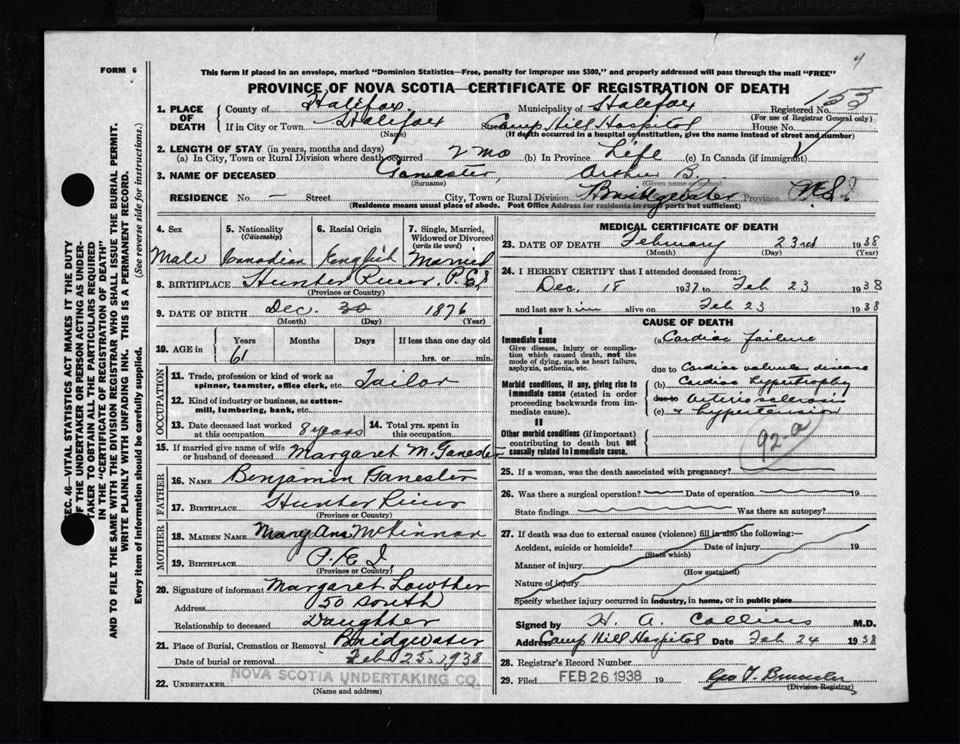 FORM 6
This form if placed in an envelope, marked "Dominion Statistics—Free, penalty for improper use $300," and properly addressed will pass through the mail "FREE"
4
PROVINCE OF NOVA SCOTIA—CERTIFICATE OF REGISTRATION OF DEATH
153
1. PLACE OF DEATH
County of Halifax Municipality of Halifax Registered No.
(For use of Registrar General only)
If in City or Town Halifax Street Camp Hill Hospital House No.
(Name) (If death occurred in a hospital or institution, give the name instead of street and number)
2. LENGTH OF STAY (in years, months and days)
(a) In City, Town or Rural Division where death occurred 2 mo (b) In Province Life (c) In Canada (if immigrant)
3. NAME OF DECEASED Ganester, Arthur B.
(Surname) (Given name or names)
RESIDENCE No. — Street City, Town or Rural Division Bridgewater Province N.S.
(Residence means usual place of abode. Post Office Address for residents in rural parts not sufficient)
SEC. 46—VITAL STATISTICS ACT MAKES IT THE DUTY
OF THE UNDERTAKER OR PERSON ACTING AS UNDER-
TAKER TO OBTAIN ALL THE PARTICULARS REQUIRED
IN THE "CERTIFICATE OF REGISTRATION OF DEATH"
AND TO FILE THE SAME WITH THE DIVISION REGISTRAR WHO SHALL ISSUE THE BURIAL PERMIT.
WRITE PLAINLY WITH UNFADING INK. THIS IS A PERMANENT RECORD.
Every item of information should be carefully supplied. (See reverse side for instructions.)
4. Sex
Male
5. Nationality
(Citizenship)
Canadian
6. Racial Origin
English
7. Single, Married,
Widowed or Divorced
(write the word)
Married
8. BIRTHPLACE Hunter River, P.E.I
(Province or Country)
9. DATE OF BIRTH Dec. 30 1876
(Month) (Day) (Year)
10. AGE in
Years Months Days If less than one day old
61 hrs. or min.
OCCUPATION
11. Trade, profession or kind of work as
spinner, teamster, office clerk, etc. Tailor
12. Kind of industry or business, as cotton-
mill, lumbering, bank, etc.
13. Date deceased last worked
at this occupation 8 years
14. Total yrs. spent in
this occupation.
15. If married give name of wife
or husband of deceased Margaret M. Ganester
FATHER
16. NAME Benjamin Ganester
17. BIRTHPLACE Hunter River
(Province or Country)
MOTHER
18. MAIDEN NAME Mary Ann McKinnon
19. BIRTHPLACE P.E.I
(Province or Country)
20. Signature of informant Margaret Lowther
Address 50 South
Relationship to deceased Daughter
21. Place of Burial, Cremation or Removal Bridgewater
Date of burial or removal Feb 25, 1938
22. UNDERTAKER NOVA SCOTIA UNDERTAKING CO.
(Name and address)
MEDICAL CERTIFICATE OF DEATH
23. DATE OF DEATH February 23rd 1938
(Month) (Day) (Year)
24. I HEREBY CERTIFY that I attended deceased from:
Dec. 18 1937 to Feb 23 1938
and last saw him alive on Feb 23 1938
CAUSE OF DEATH
I
Immediate cause
Give disease, injury or complica-
tion which caused death, not the
mode of dying, such as heart failure,
asphyxia, asthenia, etc.
(a) Cardiac failure
due to Cardiac valvular disease
Morbid conditions, if any, giving rise to
Immediate cause (stated in order
proceeding backwards from im-
mediate cause).
(b) Cardiac hypertrophy
due to Arteriosclerosis
(c) & hypertension
II
Other morbid conditions (if important)
contributing to death but not
causally related to immediate cause.
92-a
25. If a woman, was the death associated with pregnancy?
26. Was there a surgical operation? Date of operation 19
State findings Was there an autopsy?
27. If death was due to external causes (violence) fill in also the following:—
Accident, suicide or homicide? Date of injury 19
(State which)
Manner of injury
(How sustained)
Nature of injury
Specify whether injury occurred in industry, in home, or in public place
Signed by H. A. Collins M.D.
Address Camp Hill Hospital Date Feb 24 1938
28. Registrar's Record Number
29. Filed FEB 26 1938 19
(Division Registrar)